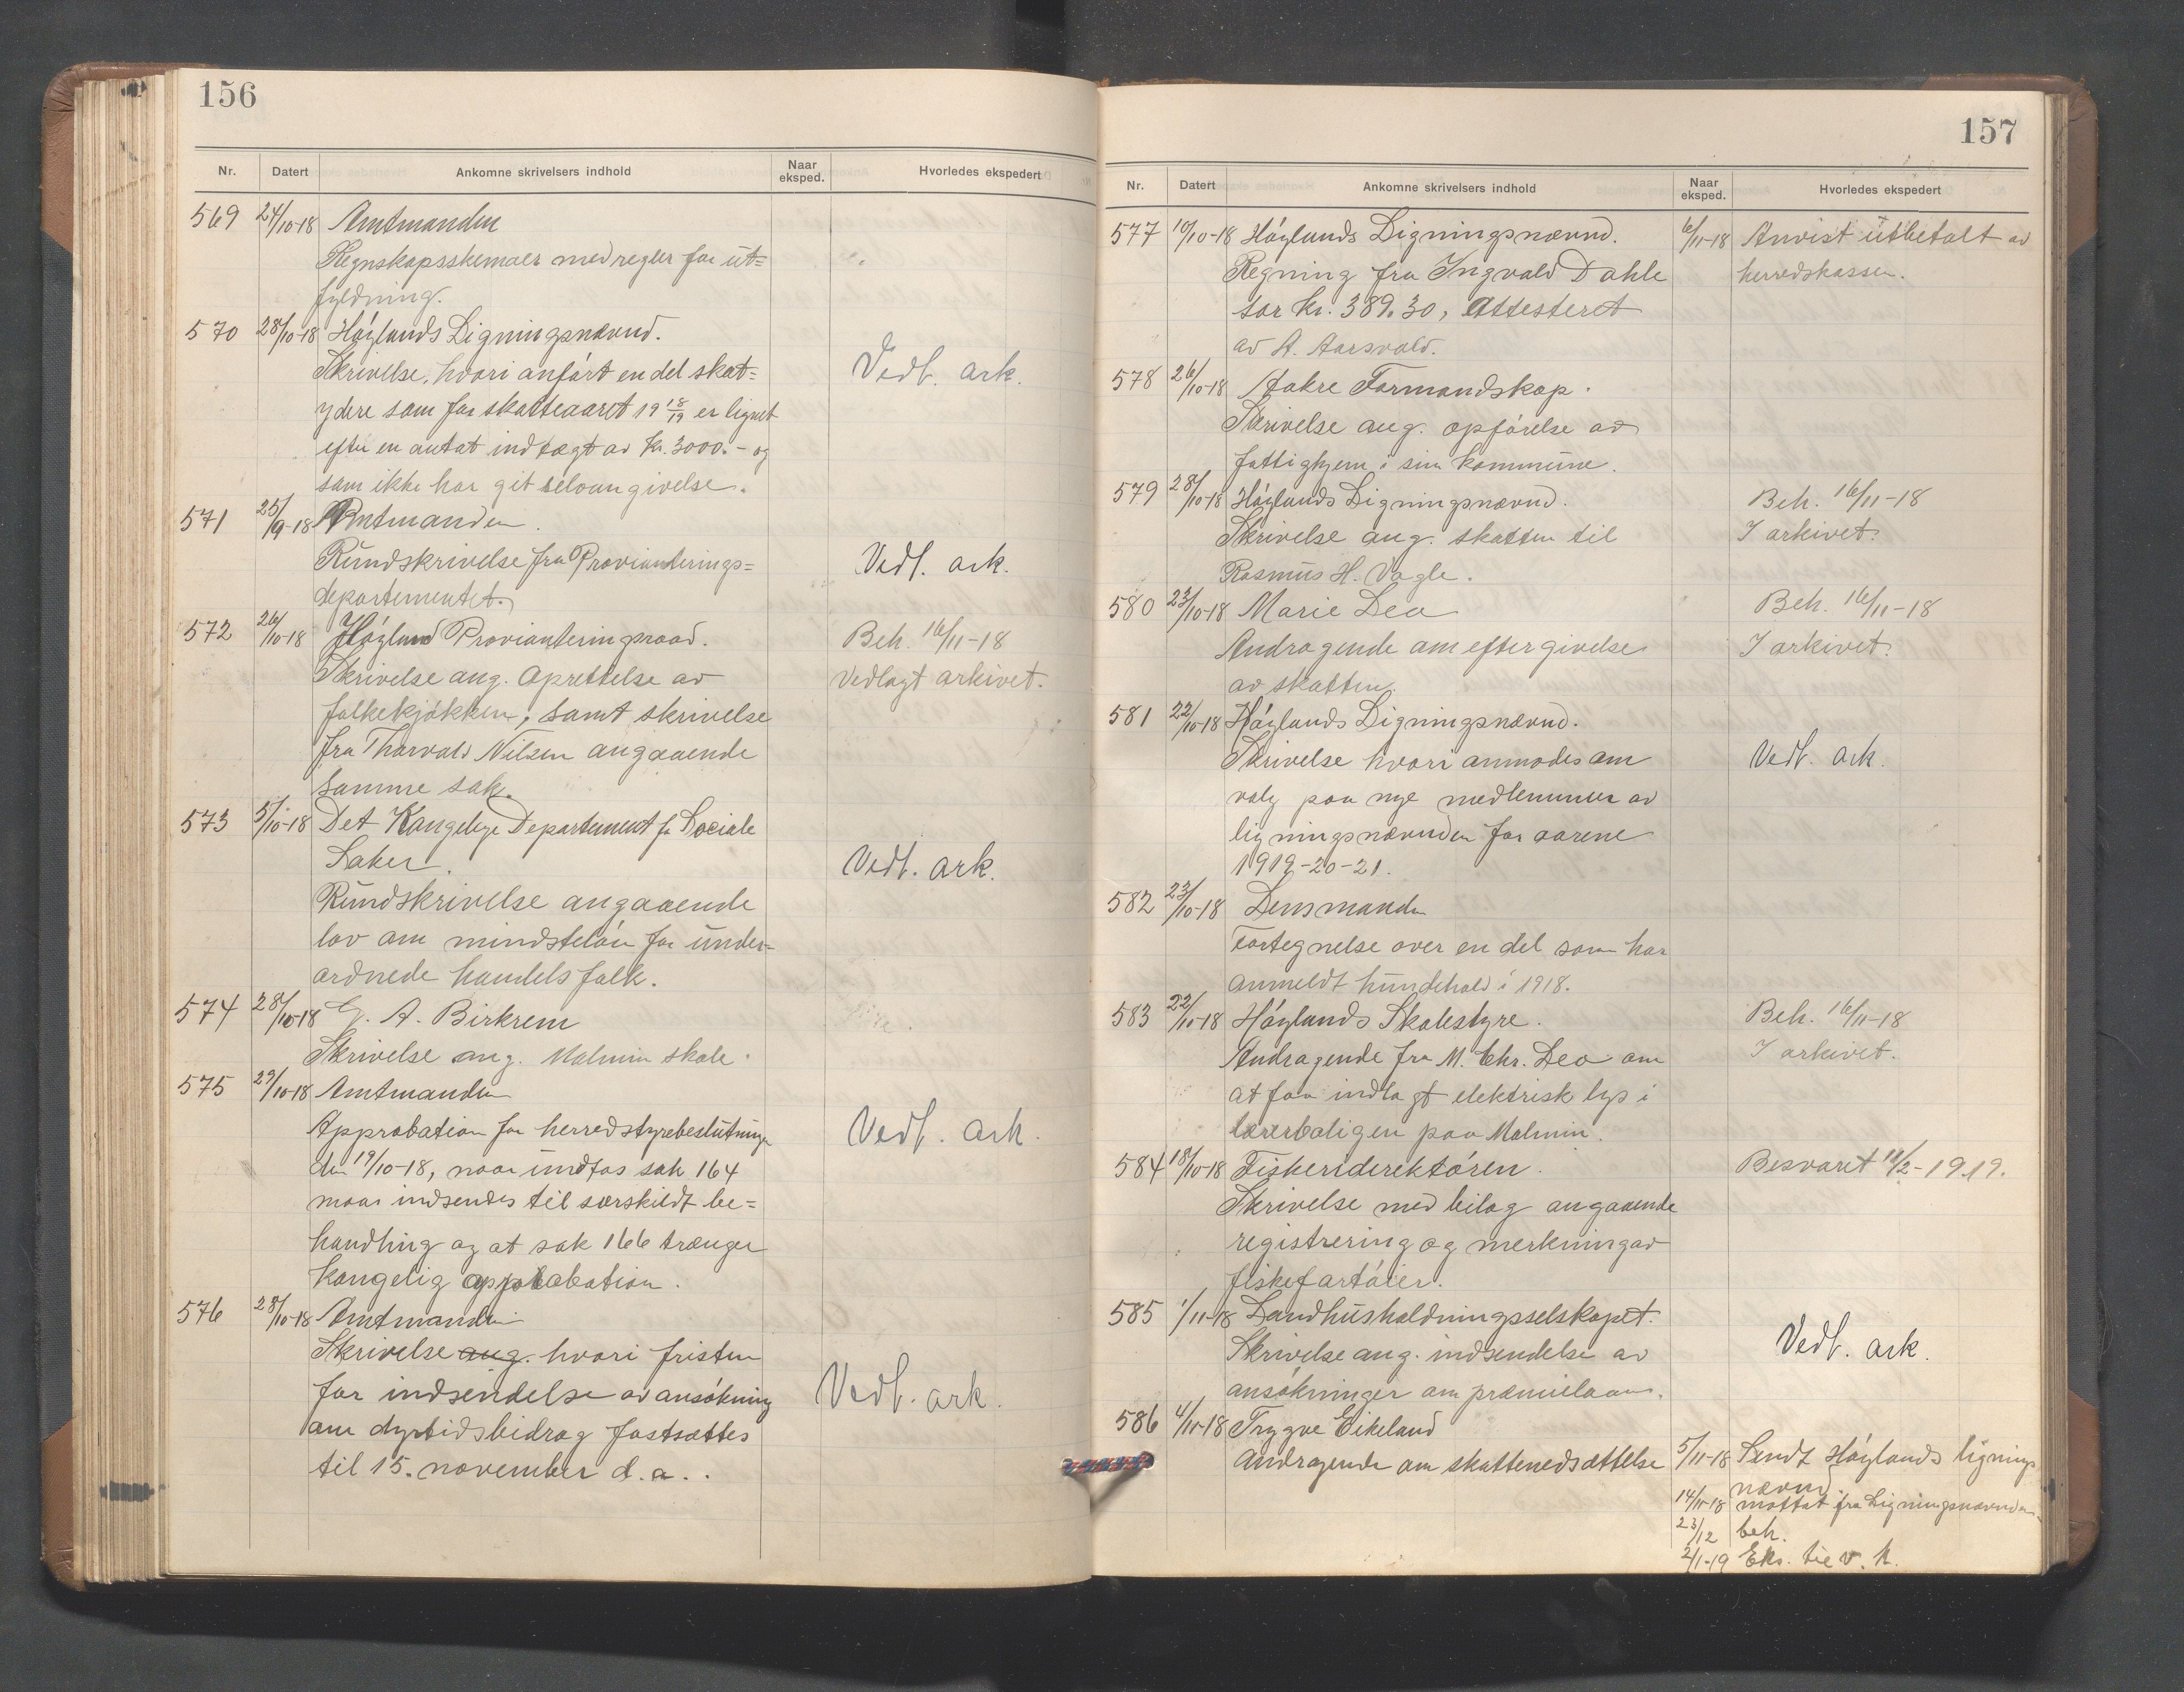 156
Nr. Datert Ankomne skrivelsers indhold Naar eksped. Hvorledes ekspedert
569 24/10-18 Amtmanden
Regnskapsskemaer med regler for ut-
fyldning.
570 28/10-18 Höylands Ligningsnævnd.
Skrivelse, hvori anført en del skat- Vedl. ark.
ydere som for skatteaaret 19 18/19 er lignet
efter en antat indtægt av kr. 3000.- og
som ikke har git selvangivelse.
571 25/9-18 Amtmanden.
Rundskrivelse fra Provianterings- Vedl. ark.
departementet.
572 26/10-18 Höyland Provianteringsraad. Beh. 16/11-18
Skrivelse ang. oprettelse av Vedlagt arkivet.
folkekjökken, samt skrivelse
fra Thorvald Nilsen angaaende
samme sak.
573 5/10-18 Det Kongelige Departement for Sociale
Saker. Vedl. ark.
Rundskrivelse angaaende
lov om mindstelön for under-
ordnede handelsfolk.
574 28/10-18 G. A. Birkrem
Skrivelse ang. Malmin skole.
575 29/10-18 Amtmanden
Approbation for herredstyrebeslutninger Vedl. ark.
den 19/10-18, naar undtas sak 164
maa indsendes til særskildt be-
handling og at sak 166 trænger
kongelig approbation.
576 28/10-18 Amtmanden
Skrivelse ang. hvori fristen
for indsendelse av ansökning Vedl. ark.
om dyrtidsbidrag fastsættes
til 15. november d.a..
157
Nr. Datert Ankomne skrivelsers indhold Naar eksped. Hvorledes ekspedert
577 10/10-18 Höylands Ligningsnævnd. 6/11-18 Anvist utbetalt av
Regning fra Ingvald Dahle herredskassen.
for kr. 389.30, Attesteret
av A. Aarsvold.
578 26/10-18 Aakre Formandskap.
Skrivelse ang. opförelse av
fattighjem i sin kommune.
579 28/10-18 Höylands Ligningsnævnd. Beh. 16/11-18
Skrivelse ang. skatten til I arkivet.
Rasmus H. Vagle.
580 23/10-18 Marie Lea Beh. 16/11-18
Andragende om eftergivelse I arkivet.
av skatten.
581 22/10-18 Höylands Ligningsnævnd.
Skrivelse hvori anmodes om Vedl. ark.
valg paa nye medlemmer av
ligningsnævnden for aarene
1919-20-21.
582 23/10-18 Lensmanden
Fortegnelse over en del som har
anmeldt hundehold i 1918.
583 22/10-18 Höylands Skolestyre. Beh. 16/11-18
Andragende fra M. Chr. Lea om I arkivet.
at faa indlagt elektrisk lys i
lærerboligen paa Malmin.
584 18/10-18 Fiskeridirektören. Besvaret 11/2-1919.
Skrivelse med bilag angaaende
registrering og merkning av
fiskefartöier.
585 1/11-18 Landhusholdningsselskapet.
Skrivelse ang. indsendelse av Vedl. ark.
ansökninger om præmielaan.
586 4/11-18 Trygve Eikeland
Andragende om skattenedsættelse 5/11-18 Sendt Höylands lignings
nævnd.
14/11-18 mottat fra Ligningsnævnden.
23/12 beh.
2/1-19 Eks. til v. k.